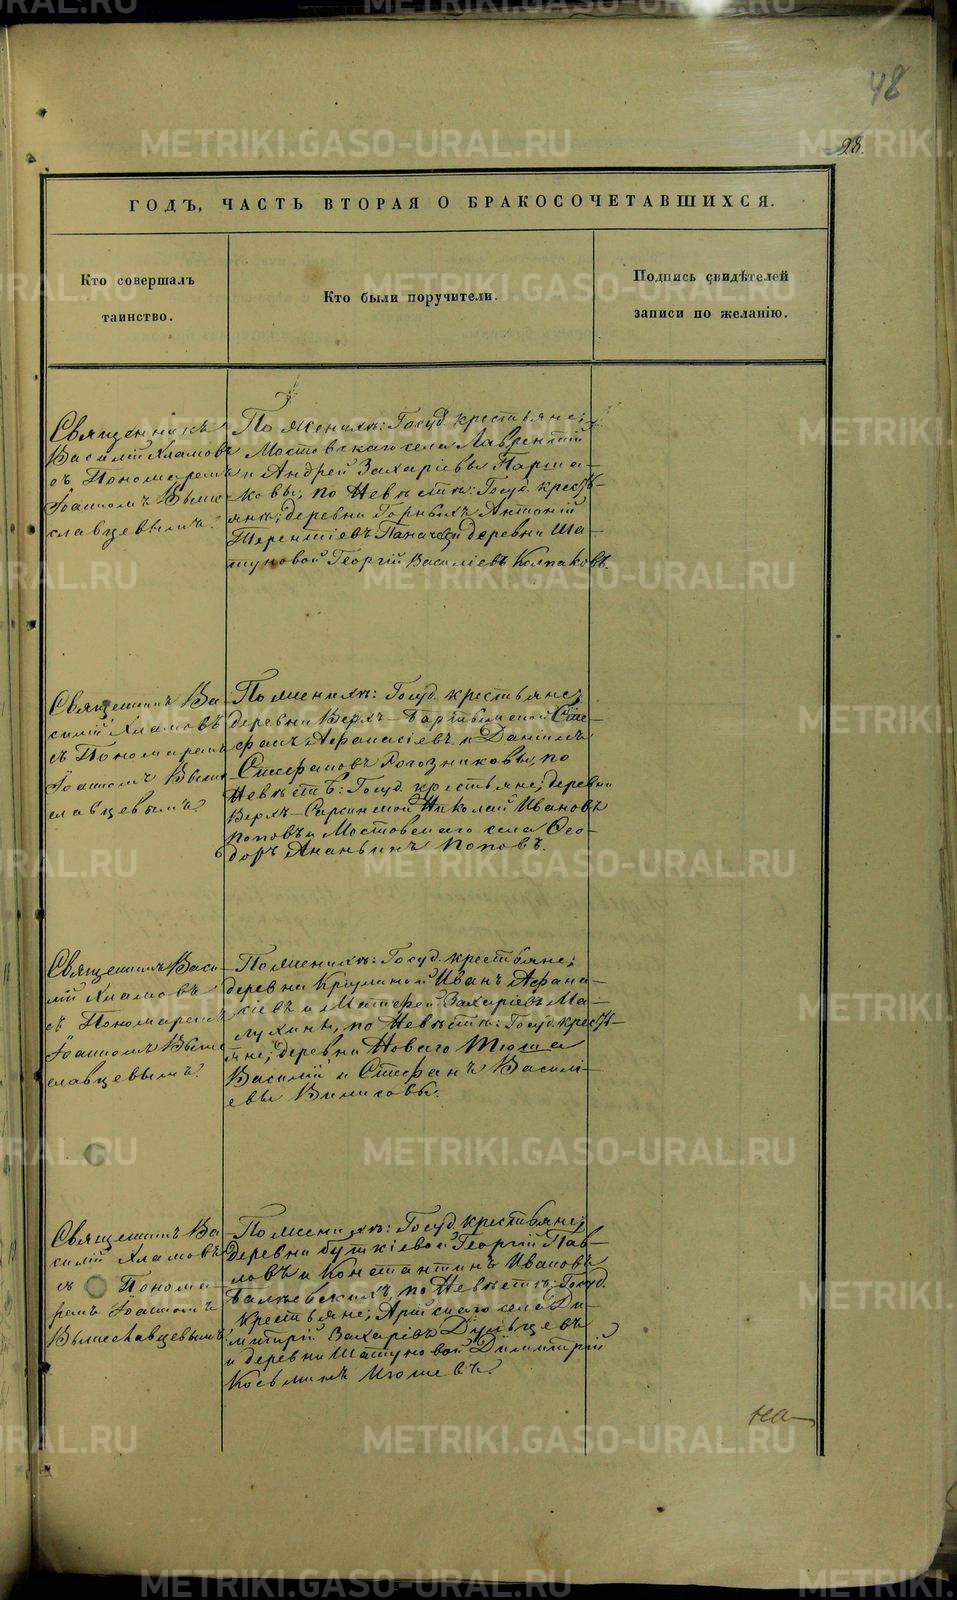 48
28.
ГОДЪ, ЧАСТЬ ВТОРАЯ О БРАКОСОЧЕТАВШИХСЯ.
Кто совершалъ
таинство.
Кто были поручители.
Подпись свидѣтелей
записи по желанію.
Священникъ
Василій Хламовъ
съ Пономаремъ
Іоанномъ Выше-
славцевымъ.
По женихѣ: Госуд. крестьяне;
Мостовскаго села Лаврентій
и Андрей Захаріевы Парша-
ковы, по Невѣстѣ: Госуд. кресть-
яне; деревни Горныхъ Антоній
Терентіевъ и деревни Ша-
туновой Георгій Василіевъ Колпаковъ.
Священникъ Ва-
силій Хламовъ
съ Пономаремъ
Іоанномъ Выше-
славцевымъ.
По женихѣ: Госуд. крестьяне;
деревни Верхъ-Бартымской Сте-
фанъ Афанасіевъ и Даніилъ
Стефановъ Рогозниковы, по
Невѣстѣ: Госуд. крестьяне; деревни
Верхъ-Сарсинской Николай Ивановъ
Поповъ и Мостовскаго села Ѳео-
доръ Ананьинъ Поповъ.
Священникъ Васи-
лій Хламовъ
съ Пономаремъ
Іоанномъ Выше-
славцевымъ.
По женихѣ: Госуд. крестьяне;
деревни Иванъ Афана-
сіевъ и Матфей Захаріевъ Ма-
лухины, по Невѣстѣ: Госуд. кресть-
яне; деревни Новаго Тюша
Василій и Стефанъ Василі-
евы
Священникъ Ва-
силій Хламовъ
съ Понома-
ремъ Іоанномъ
Вышеславцевымъ.
По женихѣ: Госуд. крестьяне;
деревни Буткіевой Георгій Пав-
ловъ и Константинъ Ивановъ
по Невѣстѣ: Госуд.
крестьяне; Арійскаго села Ди-
митрій Захаріевъ
и деревни Шатуновой Димитрій
Косьминъ
на
METRIKI.GASO-URAL.RU